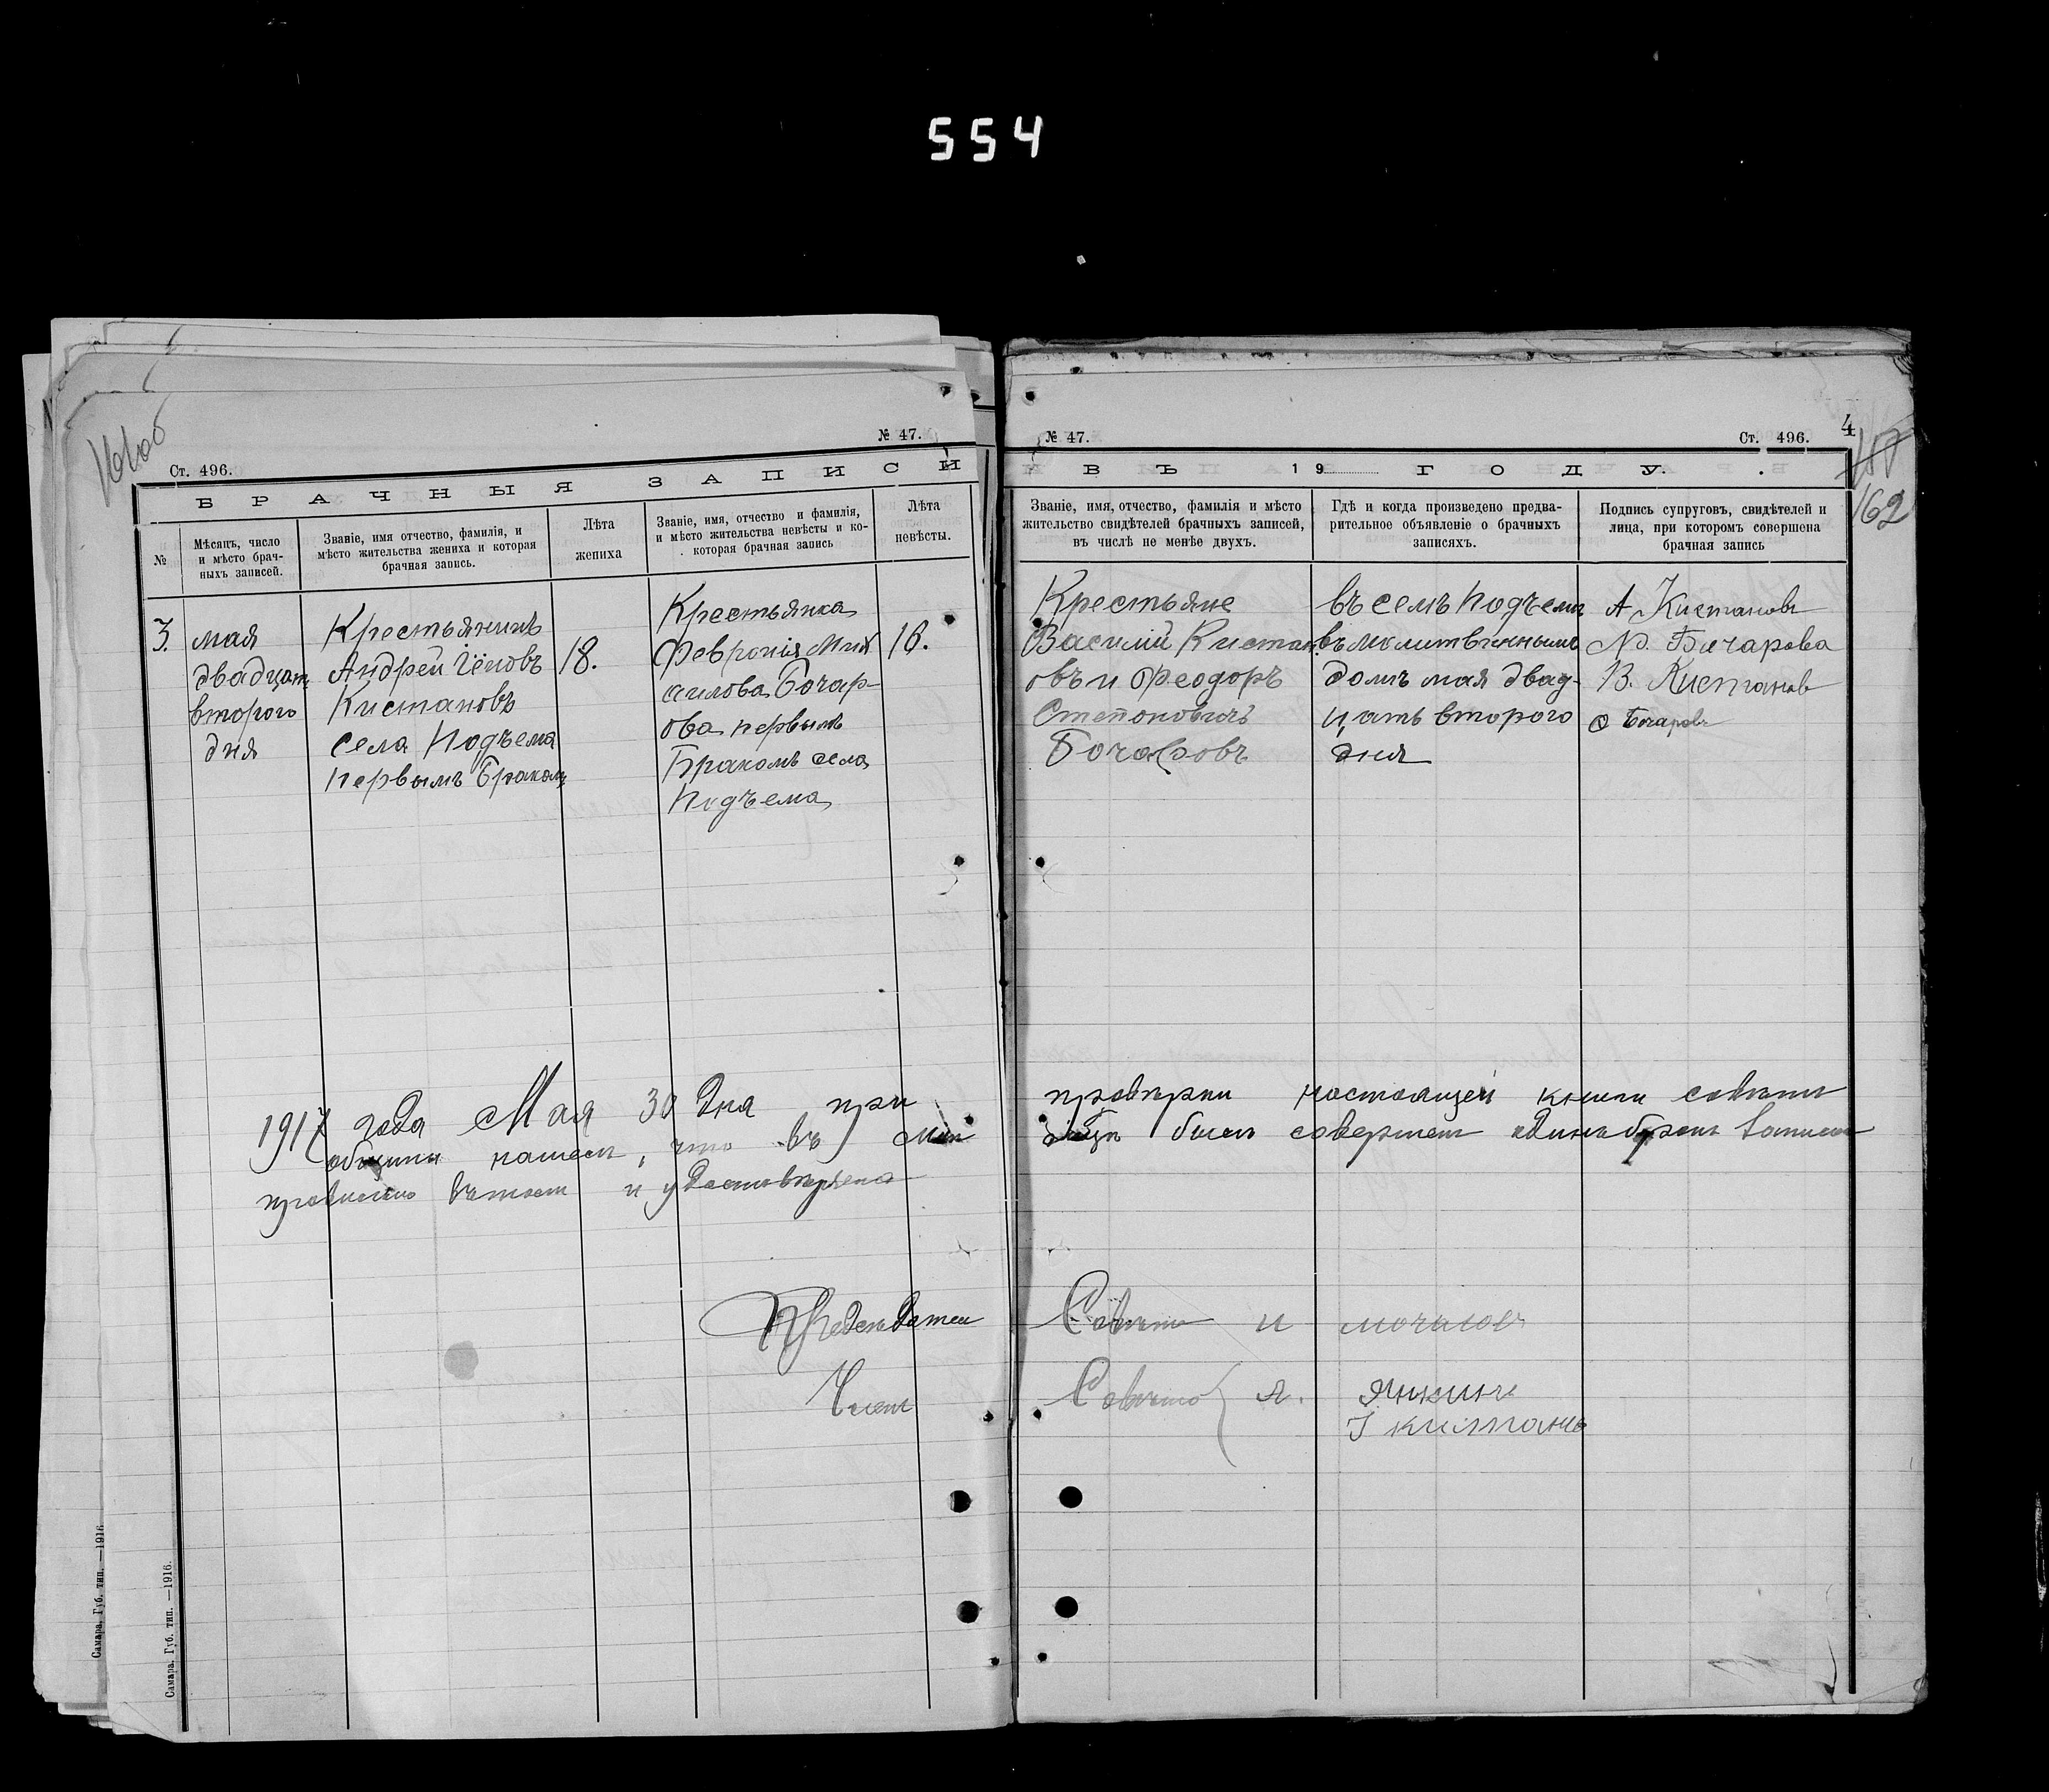 554
161об
№ 47.
Ст. 496.
БРАЧНЫЯ ЗАПИСИ
№
Мѣсяцъ, число
и мѣсто брач-
ныхъ записей.
Званіе, имя отчество, фамилія, и
мѣсто жительства жениха и которая
брачная запись.
Лѣта
жениха
Званіе, имя, отчество и фамилія,
и мѣсто жительства невѣсты и ко-
которая брачная запись
Лѣта
невѣсты.
3.
мая
двадцать
второго
дня
Крестьянинъ
Андрей
Кистановъ
села Подъема
первымъ бракомъ
18.
Крестьянка
Февронія Мих
аилова Бочар-
ова первымъ
Бракомъ села
Подъема
16.
1917 года Мая 30 дня при
общины нашем, что въ Мая
правильно и удостовѣрено
Председатель
Член
Самара. Губ. тип. —1916.
Самара. Губ. тип. —1916.
№ 47.
Ст. 496.
4
162
ВЪ 19 ГОДУ.
Званіе, имя, отчество, фамилія и мѣсто
жительство свидѣтелей брачныхъ записей,
въ числѣ не менѣе двухъ.
Гдѣ и когда произведено предва-
рительное объявленіе о брачныхъ
записяхъ.
Подпись супруговъ, свидѣтелей и
лица, при которомъ совершена
брачная запись
Крестьяне
Василий Кистан
овъ и Феодоръ
Степоновичъ
Бочаровъ
въ селѣ Подъемъ
въ молитвенномъ
домѣ мая двад-
цать второго
дня
А Кистановъ
Бочарова
В. Кистанов
Ѳ Бочаровъ
провѣрки настоящей книги совѣтъ
былъ совершен одинъ бракъ
Совѣта И мочалов
Совѣта Я. Янкинъ